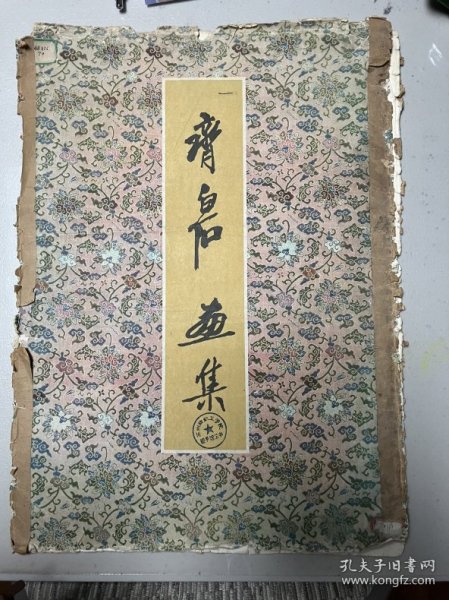 齊白石画集
孔夫子旧书网
www.kongfz.com